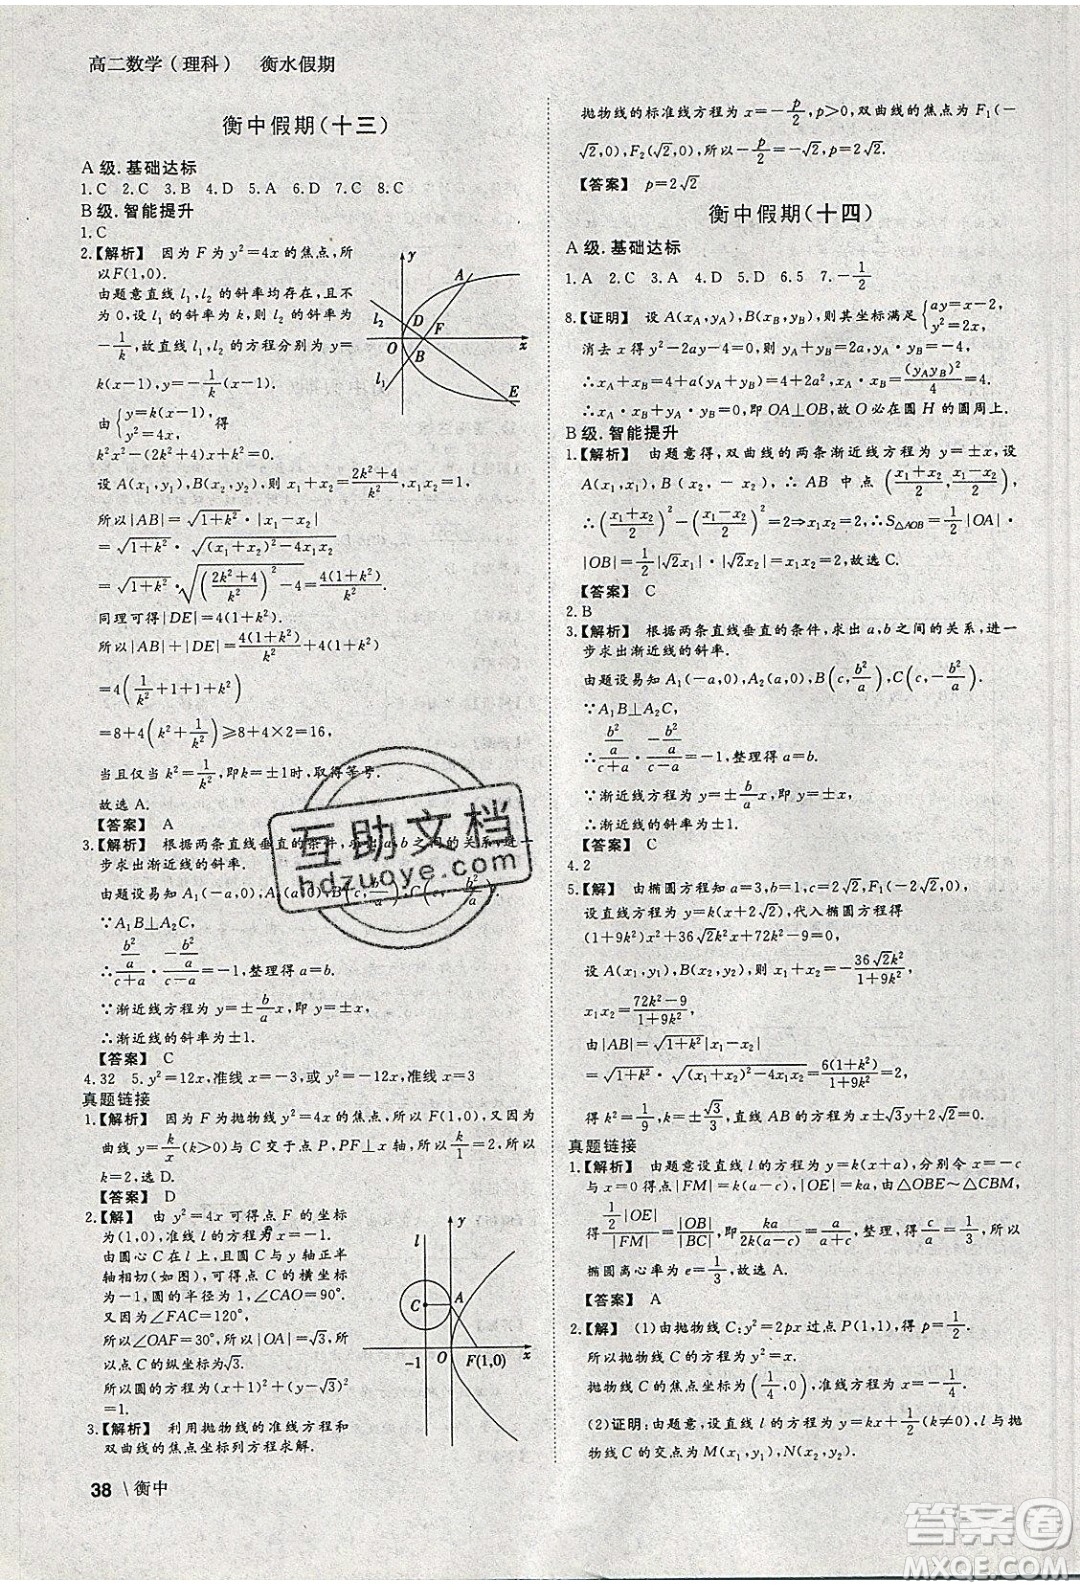 高二数学(理科) 衡水假期
衡中假期(十三)
A级.基础达标
1.C 2.C 3.B 4.D 5.A 6.D 7.C 8.C
B级.智能提升
1.C
2.【解析】 因为F为y²=4x的焦点,所
以F(1,0).
由题意直线l₁,l₂的斜率均存在,且不
为0,设l₁的斜率为k,则l₂的斜率为
-1/k,故直线l₁,l₂的方程分别为y=
k(x-1),y=-1/k(x-1).
由{y=k(x-1), y²=4x,得
k²x²-(2k²+4)x+k²=0.
设A(x₁,y₁),B(x₂,y₂),则x₁+x₂=(2k²+4)/k²,x₁x₂=1,
所以|AB|=√(1+k²)·|x₁-x₂|
=√(1+k²)·√((x₁+x₂)²-4x₁x₂)
=√(1+k²)·√(((2k²+4)/k²)²-4)=4(1+k²)/k².
同理可得|DE|=4(1+k²).
所以|AB|+|DE|=4(1+k²)/k²+4(1+k²)
=4(1/k²+1+1+k²)
=8+4(k²+1/k²)≥8+4×2=16,
当且仅当k²=1/k²,即k=±1时,取得等号.
故选A.
【答案】 A
3.【解析】 根据两条直线垂直的条件,求出a,b之间的关系,进一
步求出渐近线的斜率.
由题设易知A₁(-a,0),A₂(a,0),B(c,b²/a),C(c,-b²/a).
∵A₁B⊥A₂C,
∴(b²/a)/(c+a)·(-b²/a)/(c-a)=-1,整理得a=b.
∵渐近线方程为y=±b/a x,即y=±x,
∴渐近线的斜率为±1.
【答案】 C
4.32 5.y²=12x,准线x=-3,或y²=-12x,准线x=3
真题链接
1.【解析】 因为F为抛物线y²=4x的焦点,所以F(1,0),又因为
曲线y=k/x(k>0)与C交于点P,PF⊥x轴,所以k/1=2,所以
k=2,选D.
【答案】 D
2.【解】 由y²=4x可得点F的坐标
为(1,0),准线l的方程为x=-1.
由圆心C在l上,且圆C与y轴正半
轴相切(如图),可得点C的横坐标
为-1,圆的半径为1,∠CAO=90°.
又因为∠FAC=120°,
所以∠OAF=30°,所以|OA|=√3,
所以点C的纵坐标为√3.
所以圆的方程为(x+1)²+(y-√3)²
=1.
3.【解析】 利用抛物线的准线方程和
双曲线的焦点坐标列方程求解.
38 \ 衡中
y
A
l₂
D
F
O
B
x
l₁
E
y
l
C
A
-1
O
F(1,0)
x
抛物线的标准线方程为x=-p/2,p>0,双曲线的焦点为F₁(-
√2,0),F₂(√2,0),所以-p/2=-√2,p=2√2.
【答案】 p=2√2
衡中假期(十四)
A级.基础达标
1.A 2.C 3.A 4.D 5.D 6.5 7.-1/2
8.【证明】 设A(x_A,y_A),B(x_B,y_B),则其坐标满足{ay=x-2, y²=2x.
消去x得y²-2ay-4=0,则y_A+y_B=2a,y_Ay_B=-4,
∴x_A+x_B=4+a(y_A+y_B)=4+2a²,x_A·x_B=(y_Ay_B)²/4=4.
∴x_A·x_B+y_A·y_B=0,即OA⊥OB,故O必在圆H的圆周上.
B级.智能提升
1.【解析】 由题意得,双曲线的两条渐近线方程为y=±x,设
A(x₁,x₁),B(x₂,-x₂),∴AB中点((x₁+x₂)/2,(x₁-x₂)/2),
∴((x₁+x₂)/2)²-((x₁-x₂)/2)²=2⇒x₁x₂=2,∴S△AOB=1/2|OA|·
|OB|=1/2|√2x₁|·|√2x₂|=x₁x₂=2,故选C.
【答案】 C
2.B
3.【解析】 根据两条直线垂直的条件,求出a,b之间的关系,进一
步求出渐近线的斜率.
由题设易知A₁(-a,0),A₂(a,0),B(c,b²/a),C(c,-b²/a).
∵A₁B⊥A₂C,
∴(b²/a)/(c+a)·(-b²/a)/(c-a)=-1,整理得a=b.
∵渐近线方程为y=±b/a x,即y=±x,
∴渐近线的斜率为±1.
【答案】 C
4.2
5.【解】 由椭圆方程知a=3,b=1,c=2√2,F₁(-2√2,0),
设直线方程为y=k(x+2√2),代入椭圆方程得
(1+9k²)x²+36√2k²x+72k²-9=0,
设A(x₁,y₁),B(x₂,y₂),则x₁+x₂=-36√2k²/(1+9k²),
x₁x₂=(72k²-9)/(1+9k²).
由|AB|=√(1+k²)|x₁-x₂|
=√(1+k²)·√((x₁+x₂)²-4x₁x₂)=6(1+k²)/(1+9k²)=2,
得k²=1/9,k=±√3/3,直线AB的方程为x±√3y+2√2=0.
真题链接
1.【解析】 由题意设直线l的方程为y=k(x+a),分别令x=-c
与x=0得|FM|=k(a-c),|OE|=ka,由△OBE∽△CBM,
得(1/2|OE|)/|FM|=|OB|/|BC|,即ka/(2k(a-c))=a/(a+c),整理,得c/a=1/3,所以
椭圆离心率为e=1/3,故选A.
【答案】 A
2.【解】 (1)由抛物线C:y²=2px过点P(1,1),得p=1/2.
所以抛物线C的方程为y²=x.
抛物线C的焦点坐标为(1/4,0),准线方程为x=-1/4.
(2)证明:由题意,设直线l的方程为y=kx+1/2(k≠0),l与抛
物线C的交点为M(x₁,y₁),N(x₂,y₂).
互助文档
hdzuoye.com
答案圈
MXQE.COM